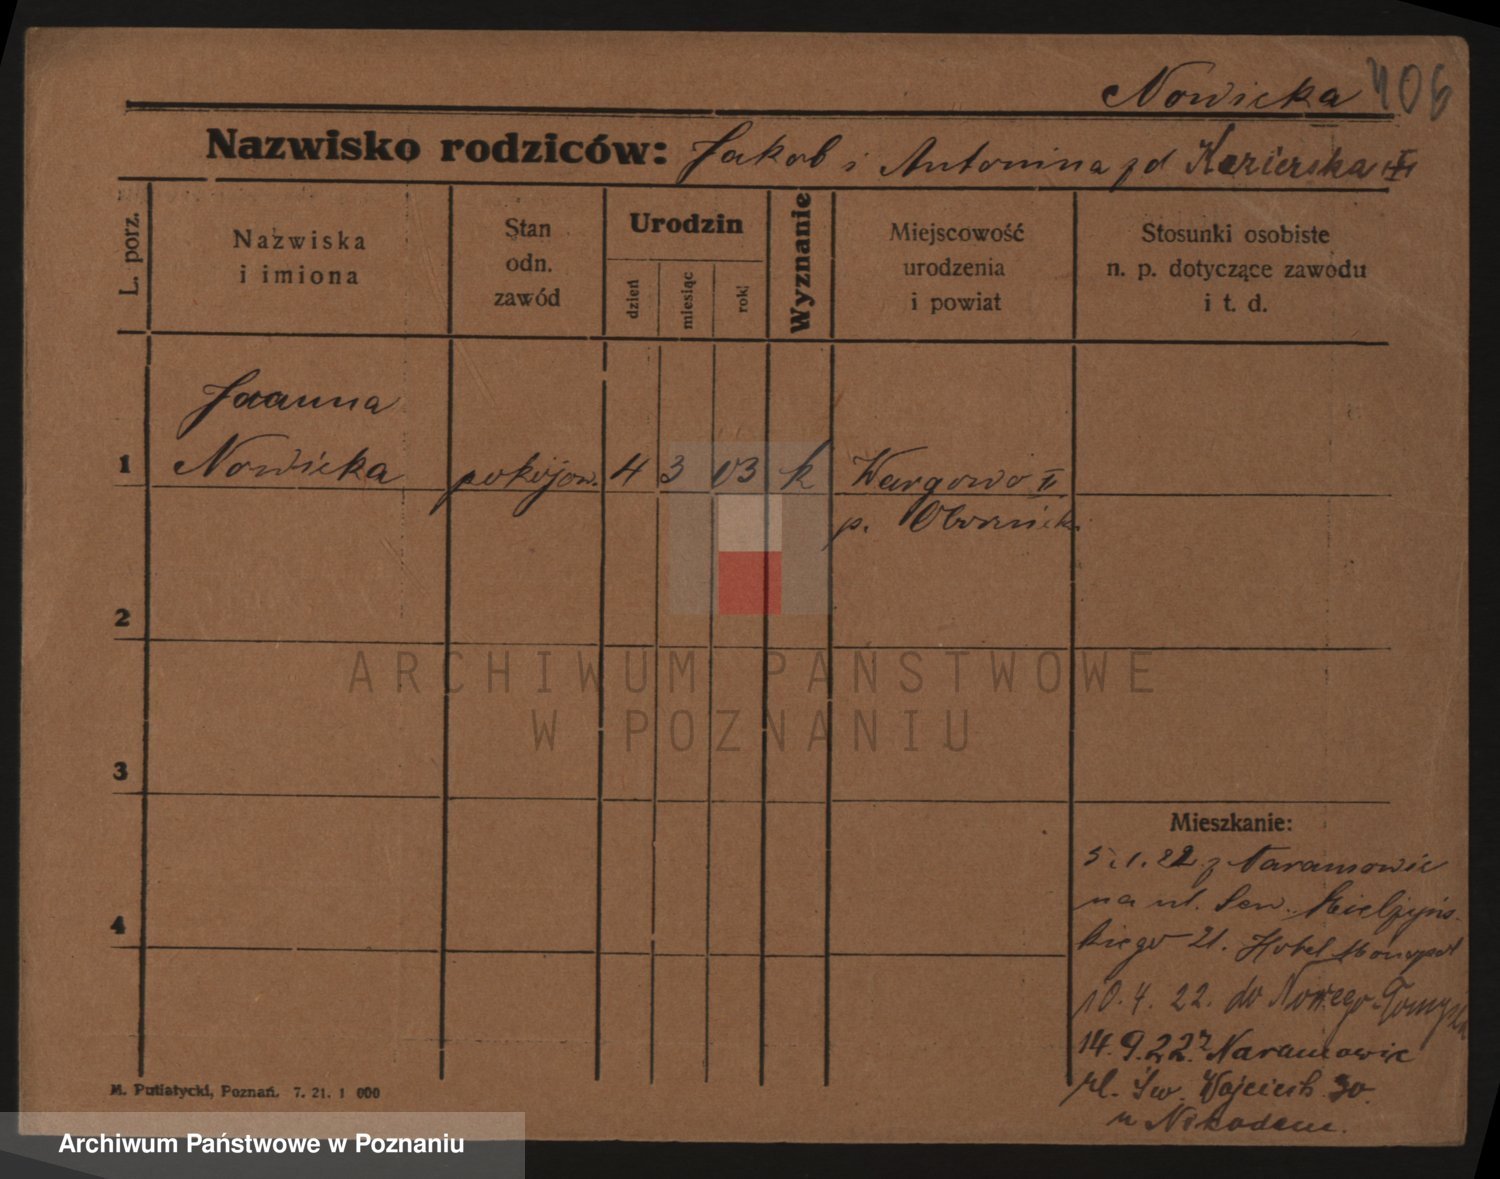 Nowicka 406
Nazwisko rodziców: Jakob i Antonina zd Kazierska II
L. porz.
Nazwiska
i imiona
Stan
odn.
zawód
Urodzin
dzień
miesiąc
rok
Wyznanie
Miejscowość
urodzenia
i powiat
Stosunki osobiste
n. p. dotyczące zawodu
i t. d.
Joanna
1 Nowicka pokojow. 4 3 03 k Wargowo II
p. Obornik.
2
ARCHIWUM PAŃSTWOWE
W POZNANIU
3
Mieszkanie:
5.1.22 z Naramowic
4 na ul. Sew. Mielżyńs-
kiego 21. Hotel Monopol
10.4.22. do Nowego-Tomyśla
14.9.22 z Naramowic
ul. Św. Wojciech 30.
u Nikodem.
M. Putiatycki, Poznań. 7. 21. 1 000
Archiwum Państwowe w Poznaniu